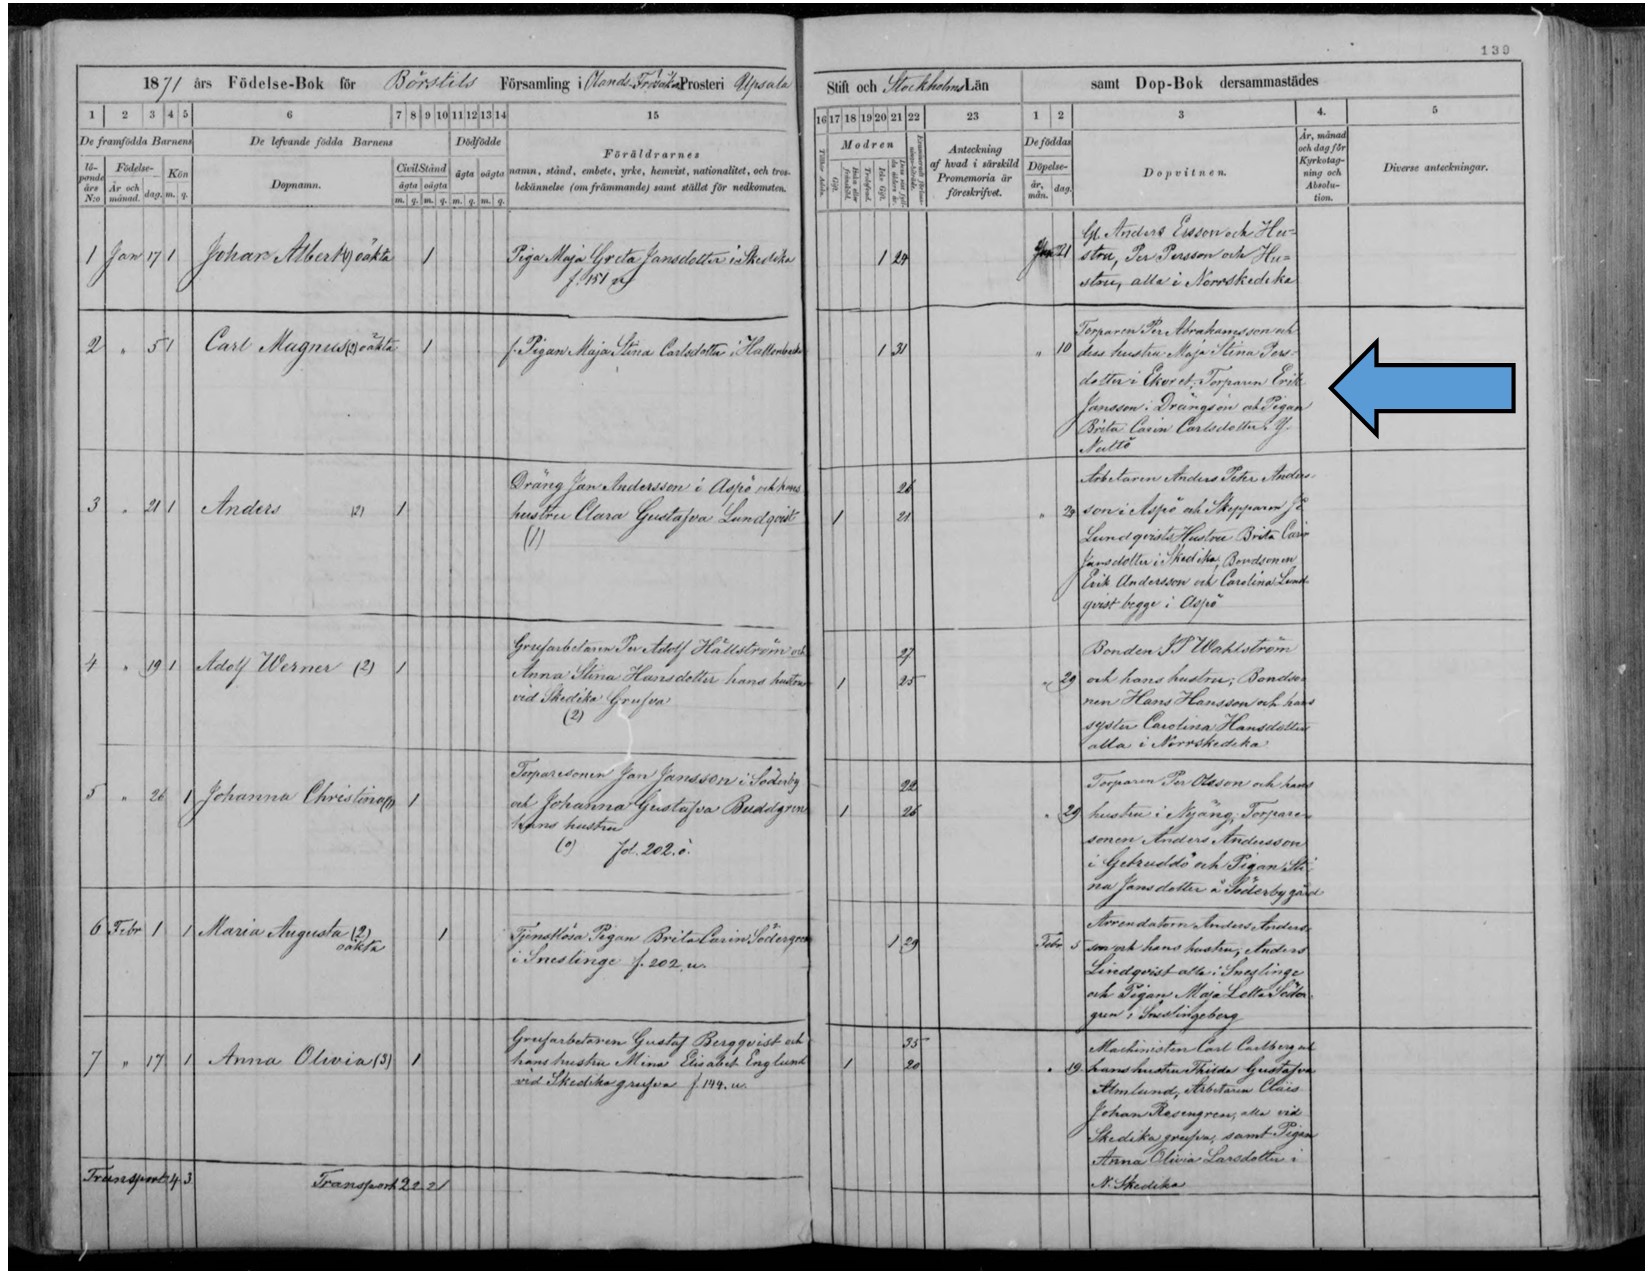 130
1871 års Födelse-Bok för Börstils Församling i Olands Prosteri Upsala
Stift och Stockholms Län samt Dop-Bok dersammastädes
1 2 3 4 5 6 7 8 9 10 11 12 13 14 15
16 17 18 19 20 21 22 23 1 2 3 4. 5
De framfödda Barnens
De lefvande födda Barnens
Dödfödde
Föräldrarnes
namn, stånd, embete, yrke, hemvist, nationalitet, och tros-
bekännelse (om främmande) samt stället för nedkomsten.
löpande års N:o
Födelse-
År och månad.
dag.
Kön
m. q.
Dopnamn.
Civil Stånd
ägta oägta
m. q. m. q.
ägta oägta
m. q. m. q.
Modren
Gift.
Trolofvad.
Icke Gift.
Anteckning
af hvad i särskild
Promemoria är
föreskrifvet.
De föddas
Döpelse-
år, mån.
dag.
Dopvitnen.
År, månad
och dag för
Kyrkotag-
ning och
Absolu-
tion.
Diverse anteckningar.
1 Jan 17 1 Johan Albert oäkta 1
Piga Maja Greta Jansdotter i Skedika
f. 151
1 24
Jan 21
Gl. Anders Ersson och Hu-
stru, Per Persson och Hu-
stru, alla i Norrskedika
2 " 5 1 Carl Magnus (2) oäkta 1
f. Pigan Maja Stina Carlsdotter i
1 31
" 10
Torparen Per Abrahamsson och
dess hustru Maja Stina Pers-
dotter i Ekoret, Torparen Erik
Jansson i Drängsön och Pigan
Brita Carin Carlsdotter i
3 " 21 1 Anders (2) 1
Dräng Jan Andersson i Aspö och hans
hustru Clara Gustafva Lundqvist
(1)
26
1 21
" 24
Arbetaren Anders Peter Anders-
son i Aspö och Skepparen
Lundqvists Hustru Brita Carin
Jansdotter i Skedika, Bondsonen
Erik Andersson och Carolina Lund-
qvist begge i Aspö
4 " 19 1 Adolf Werner (2) 1
Grufarbetaren Per Adolf Hällström och
Anna Stina Hansdotter hans hustru
vid Skedika Grufva
(2)
27
1 25
" 29
Bonden J P Wahlström
och hans hustru, Bondso-
nen Hans Hansson och hans
syster Carolina Hansdotter
alla i Norrskedika
5 " 26 1 Johanna Christina 1
Torparesonen Jan Jansson i Söderby
och Johanna Gustafva Buddgren
hans hustru
(0) fol. 202. ö.
22
1 26
" 29
Torparen Per Olsson och hans
hustru i Nyäng, Torpare-
sonen Anders Andersson
i Getruddö och Pigan Sti-
na Jansdotter å Söderby gård
6 Febr 1 1 Maria Augusta (2)
oäkta
1
Tjenstlösa Pigan Brita Carin Södergren
i Sneslinge f. 202. u.
1 29
Febr 5
Arrendatorn Anders Anders-
son och hans hustru, Anders
Lindqvist alla i Sneslinge
och Pigan Maja Lotta Söder-
gren i Sneslingeberg
7 " 17 1 Anna Olivia (3) 1
Grufarbetaren Gustaf Bergqvist och
hans hustru Mina Elisabet Englund
vid Skedika grufva f. 144. u.
35
1 20
" 19
Maskinisten Carl Carlberg och
hans hustru Thilda Gustafva
Almlund, Arbetaren Claës
Johan Rosengren, alla vid
Skedika grufva, samt Pigan
Anna Olivia Larsdotter i
N. Skedika
Transport 4 3 Transport 2 2 2 1